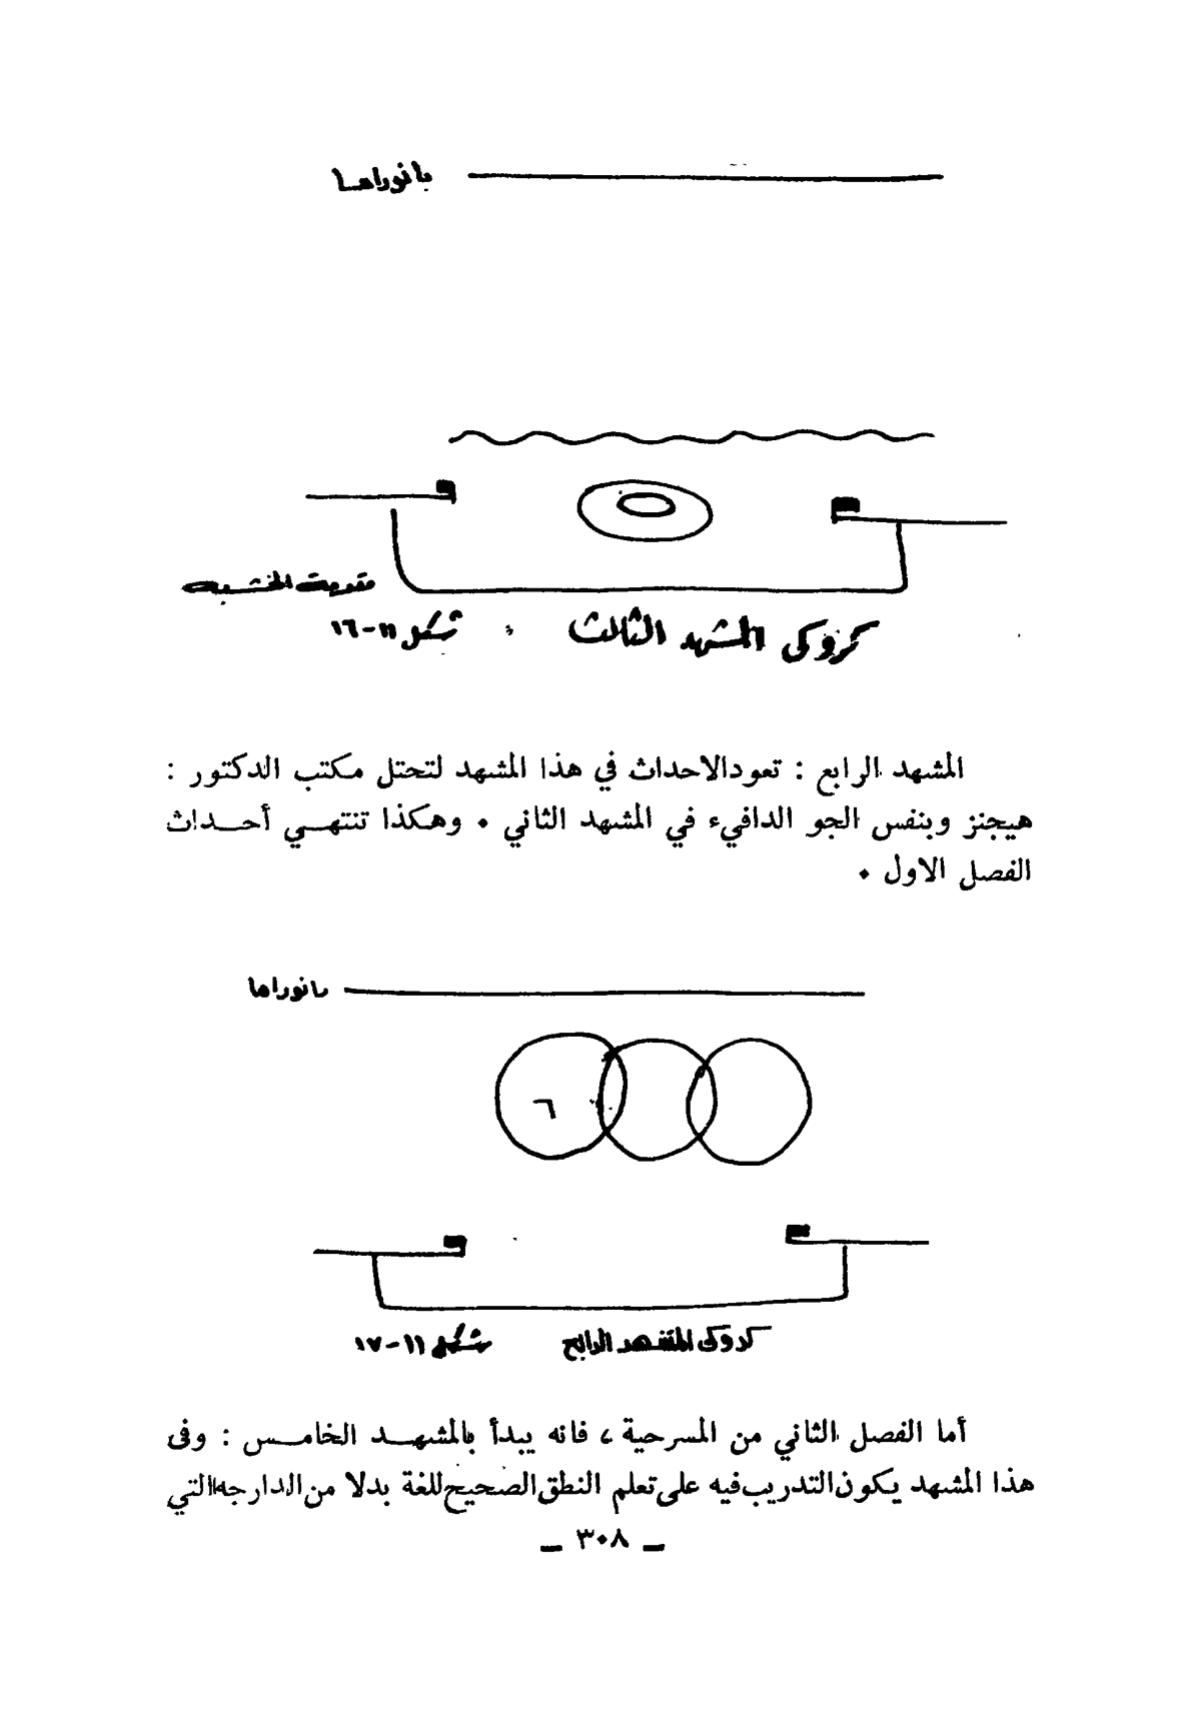 بانوراما
مقدمة الخشبه
كروكى المشهد الثالث شكل ١١-١٦
المشهد الرابع : تعود الاحداث في هذا المشهد لتحتل مكتب الدكتور :
هيجنز وبنفس الجو الدافيء في المشهد الثاني • وهكذا تنتهــي أحــداث
الفصل الاول •
بانوراما
٦
كروكى المشهد الرابع شكل ١١-١٧
أما الفصل الثاني من المسرحية ، فانه يبدأ بالمشهــد الخامــس : وفى
هذا المشهد يكون التدريب فيه على تعلم النطق الصحيح للغة بدلا من الدارجه التي
ــ ٣٠٨ ــ